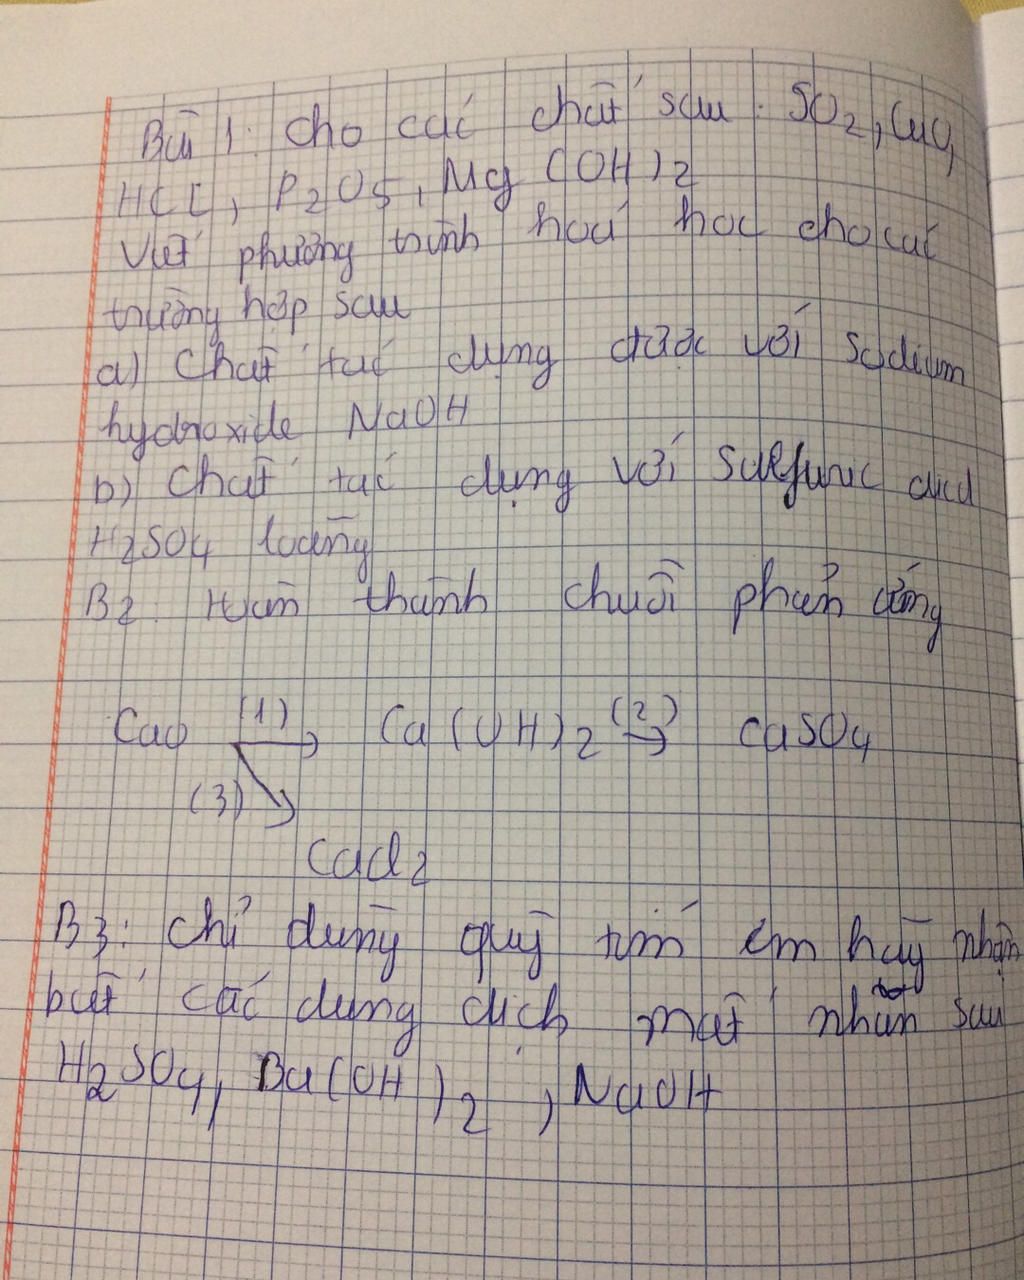 Bài 1: Cho các chất sau: SO2, CuO,
HCl, P2O5, Mg(OH)2
Viết phương trình hoá học cho các
trường hợp sau
a) Chất tác dụng được với sodium
hydroxide NaOH
b) Chất tác dụng với sulfuric acid
H2SO4 loãng
B2: Hoàn thành chuỗi phản ứng
CaO (1)→ Ca(OH)2 (2)→ CaSO4
(3)↘
CaCl2
B3: Chỉ dùng quỳ tím em hãy nhận
biết các dung dịch mất nhãn sau
H2SO4, Ba(OH)2, NaOH